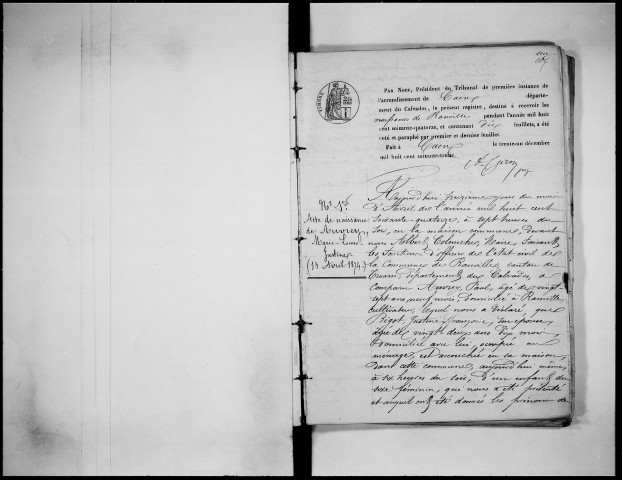 PAR NOUS, Président du Tribunal de première instance de
l'arrondissement de Caen départe-
ment du Calvados, le présent registre, destiné à recevoir les
naissances de Ranville pendant l'année mil huit
cent soixante-quatorze, et contenant dix feuillets, a été
coté et paraphé par premier et dernier feuillet.
Fait à Caen le trente-un décembre
mil huit cent soixante-treize.
TIMBRE
No 1er
Acte de naissance
de Auvray,
Marie-Louise
Justine
(13 Avril 1874)
Aujourd'hui treizième jour du mois
d'Avril de l'année mil huit cent
soixante-quatorze, à sept heures du
soir, en la maison commune, devant
nous Albert Maire, faisant
les fonctions d'officier de l'état civil de
la Commune de Ranville, canton de
Troarn, département du Calvados, a
comparu Auvray, Paul, âgé de vingt
sept ans neuf mois, domicilié à Ranville,
cultivateur, lequel nous a déclaré, que
Bigot, Justine Françoise, son épouse,
âgée de vingt deux ans dix mois
domiciliée avec lui, occupée au
ménage, est accouchée en sa maison,
dans cette commune, aujourd'hui même,
à six heures du soir, d'un enfant du
sexe féminin, qui nous a été présenté
et auquel ont été donnés les prénoms de